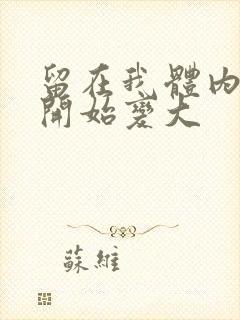 留在我體內
開始變大
蘇維